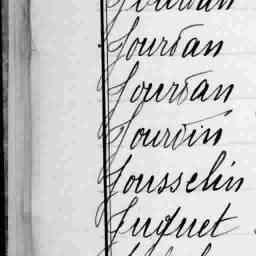 Jourdan
Jourdan
Jourdan
Jourdin
Jousselin
Juquet